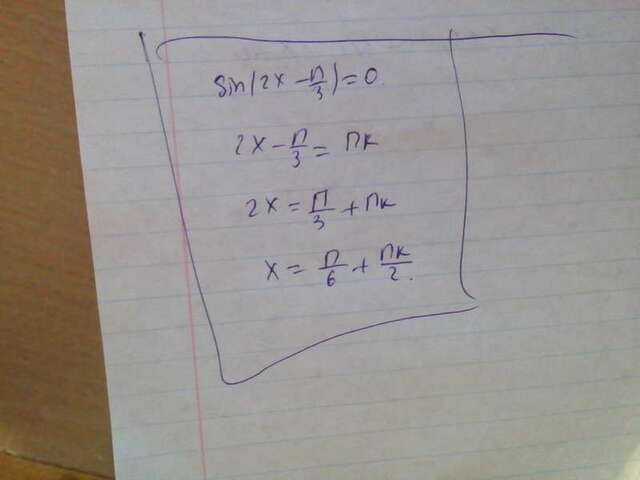 sin(2x - π/3) = 0
2x - π/3 = πk
2x = π/3 + πk
x = π/6 + πk/2.